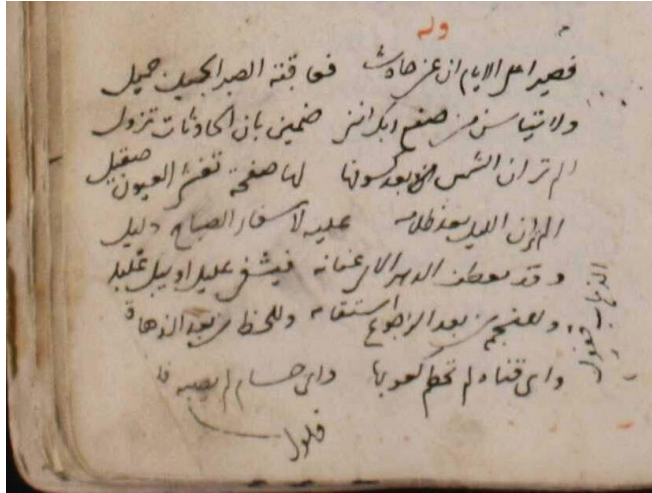 وله
فصبرا على الايام ان عن حادث فعاقبة الصبر الجميل جميل
ولا تيأسن من صنع ربك انني ضمين بان الحادثات تزول
الم تر ان الشمس بعد كسوفها لها صفحة تغشى العيون صقيل
الم تر ان الليل بعد ظلامه عليه لاسفار الصباح دليل
وقد يعطف الدهر الابي عنانه فيشفى عليل او يبل غليل
وللنجم من بعد الرجوع استقامة وللحظ من بعد الذها
الذهاب قفول
واي قناة لم تحطم كعوبها واي حسام لم يصبه
فلول